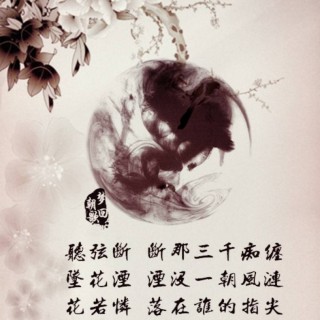 聽弦斷 斷那三千痴缠
墜花湮 湮没一朝風漣
花若憐 落在誰的指尖